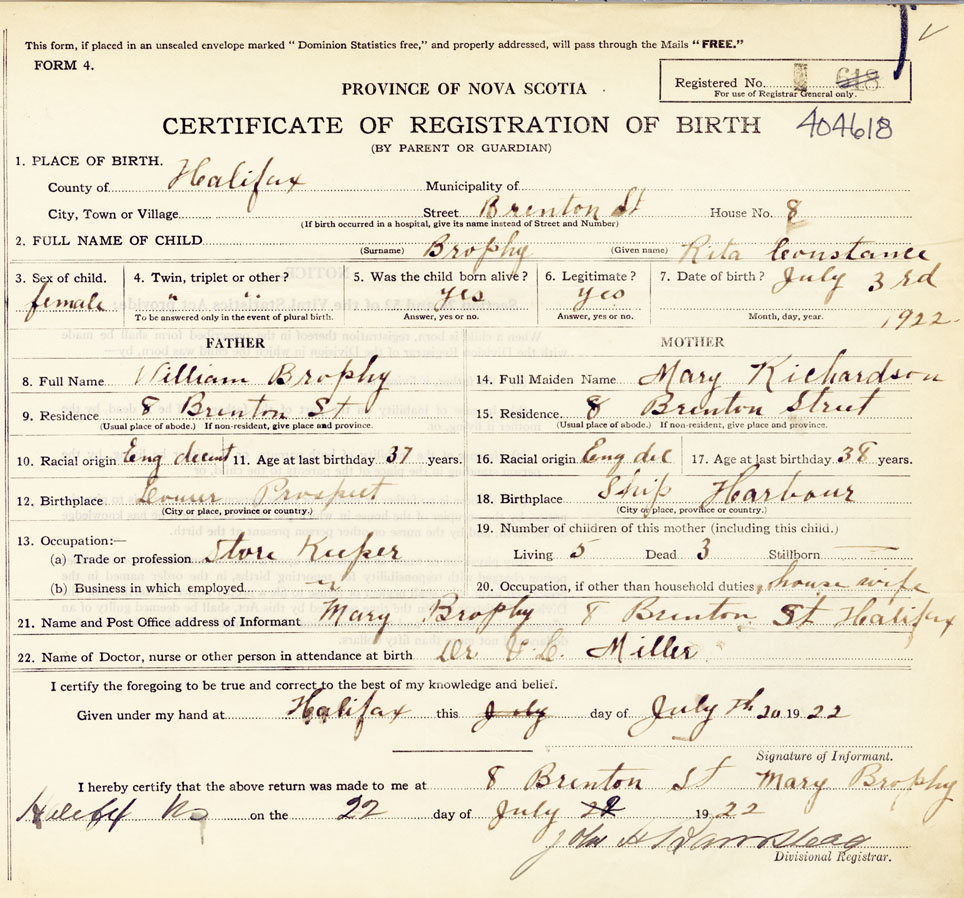 This form, if placed in an unsealed envelope marked "Dominion Statistics free," and properly addressed, will pass through the Mails "FREE."
FORM 4.
Registered No. 618
For use of Registrar General only.
PROVINCE OF NOVA SCOTIA
CERTIFICATE OF REGISTRATION OF BIRTH 404618
(BY PARENT OR GUARDIAN)
1. PLACE OF BIRTH.
County of Halifax Municipality of
City, Town or Village Street Brenton St House No. 8
(If birth occurred in a hospital, give its name instead of Street and Number)
2. FULL NAME OF CHILD (Surname) Brophy (Given name) Rita Constance
3. Sex of child. 4. Twin, triplet or other? 5. Was the child born alive? 6. Legitimate? 7. Date of birth? July 3rd
female " " yes yes
To be answered only in the event of plural birth. Answer, yes or no. Answer, yes or no. Month, day, year. 1922
FATHER MOTHER
8. Full Name William Brophy 14. Full Maiden Name Mary Richardson
9. Residence 8 Brenton St 15. Residence. 8 Brenton Street
(Usual place of abode.) If non-resident, give place and province. (Usual place of abode.) If non-resident, give place and province.
10. Racial origin Eng decent 11. Age at last birthday 37 years. 16. Racial origin Eng dec 17. Age at last birthday 38 years.
12. Birthplace Lower Prospect 18. Birthplace Ship Harbour
(City or place, province or country.) (City or place, province or country.)
19. Number of children of this mother (including this child.)
13. Occupation:—
(a) Trade or profession Store Keeper Living 5 Dead 3 Stillborn —
(b) Business in which employed 20. Occupation, if other than household duties, house wife
21. Name and Post Office address of Informant Mary Brophy 8 Brenton St Halifax
22. Name of Doctor, nurse or other person in attendance at birth Dr Miller
I certify the foregoing to be true and correct to the best of my knowledge and belief.
Given under my hand at Halifax this July day of July th 20 1922
Signature of Informant.
I hereby certify that the above return was made to me at 8 Brenton St Mary Brophy
Halifax NS on the 22 day of July 22 1922
John H
Divisional Registrar.